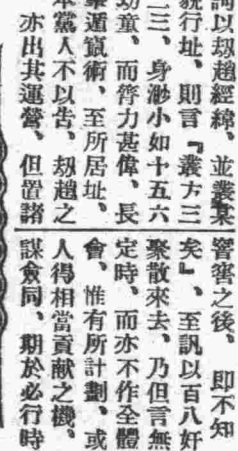 詞以刼趙經緯、並叢棠
貌行址、則言『叢方三
三、身渺小如十五六
幼童、而膂力甚偉、長
遁術、至所居址、
本黨人不以告、刼趙之
亦出其運營、但置諸
窨窖之後、即不知
矣』、至訊以百八奸
聚散來去、乃但言無
定時、而亦不作全體
會、惟有所計劃、或
人得相當貢獻之機、
謀僉同、期於必行時